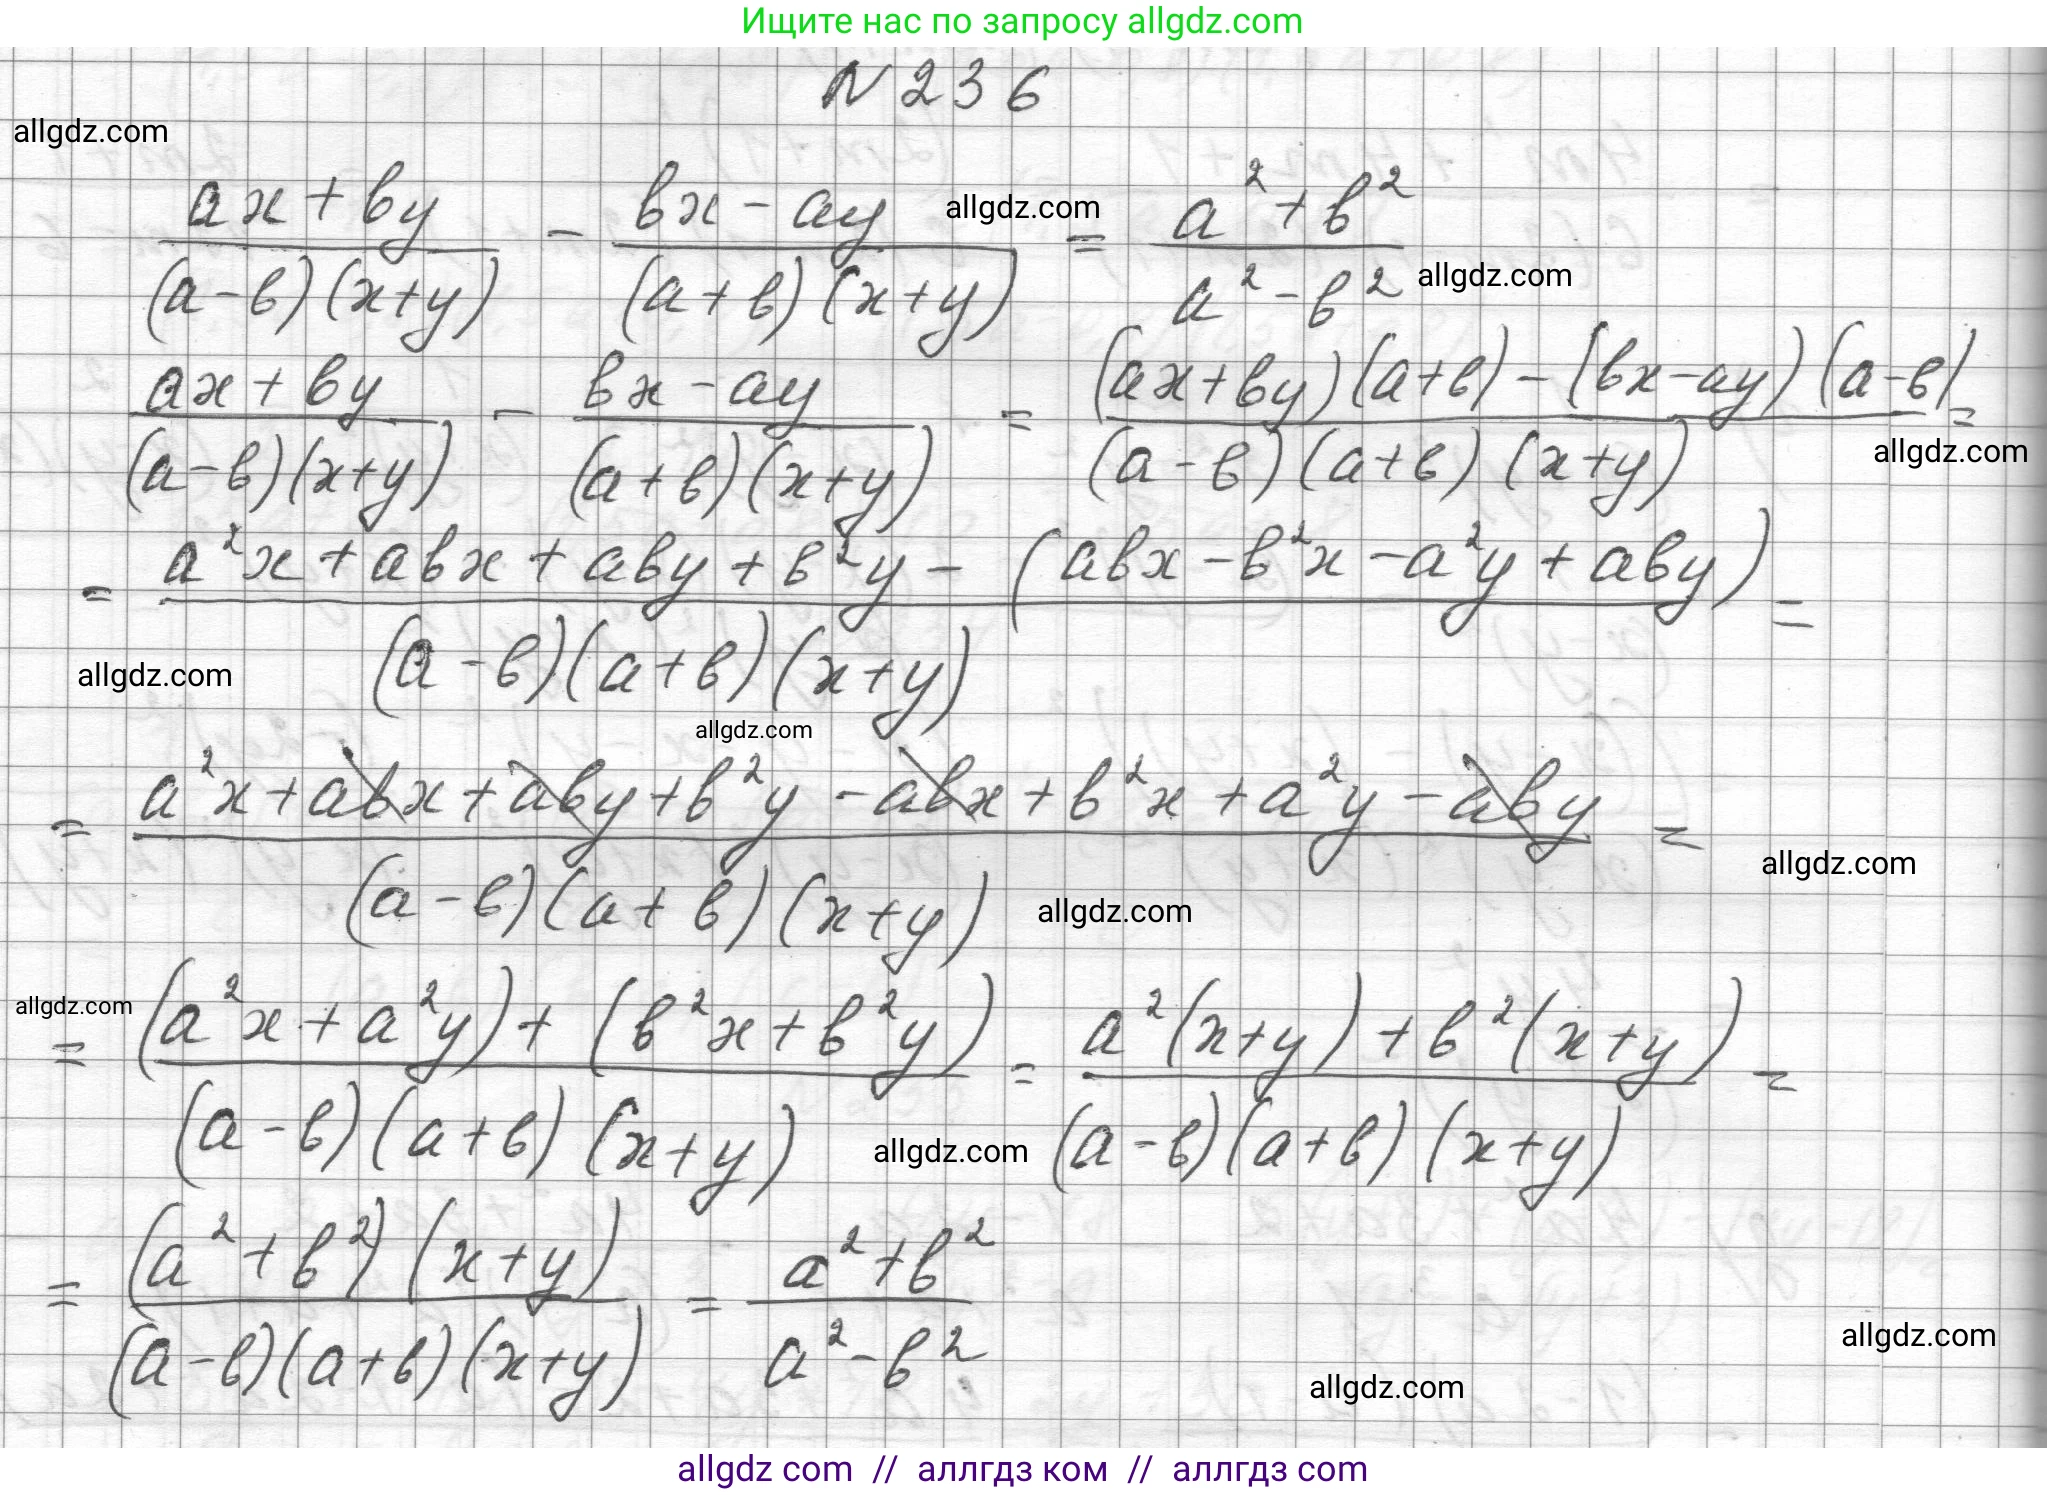 Ищите нас по запросу allgdz.com
N 236
allgdz.com
(ax+by)/((a-b)(x+y)) - (bx-ay)/((a+b)(x+y)) = (a²+b²)/(a²-b²)
allgdz.com
allgdz.com
(ax+by)/((a-b)(x+y)) - (bx-ay)/((a+b)(x+y)) = ((ax+by)(a+b)-(bx-ay)(a-b))/((a-b)(a+b)(x+y)) =
allgdz.com
= (a²x+abx+aby+b²y-(abx-b²x-a²y+aby))/((a-b)(a+b)(x+y)) =
allgdz.com
allgdz.com
= (a²x+abx+aby+b²y-abx+b²x+a²y-aby)/((a-b)(a+b)(x+y)) =
allgdz.com
allgdz.com
allgdz.com
= ((a²x+a²y)+(b²x+b²y))/((a-b)(a+b)(x+y)) = (a²(x+y)+b²(x+y))/((a-b)(a+b)(x+y)) =
allgdz.com
= ((a²+b²)(x+y))/((a-b)(a+b)(x+y)) = (a²+b²)/(a²-b²)
allgdz.com
allgdz.com
allgdz com // аллгдз ком // аллгдз com